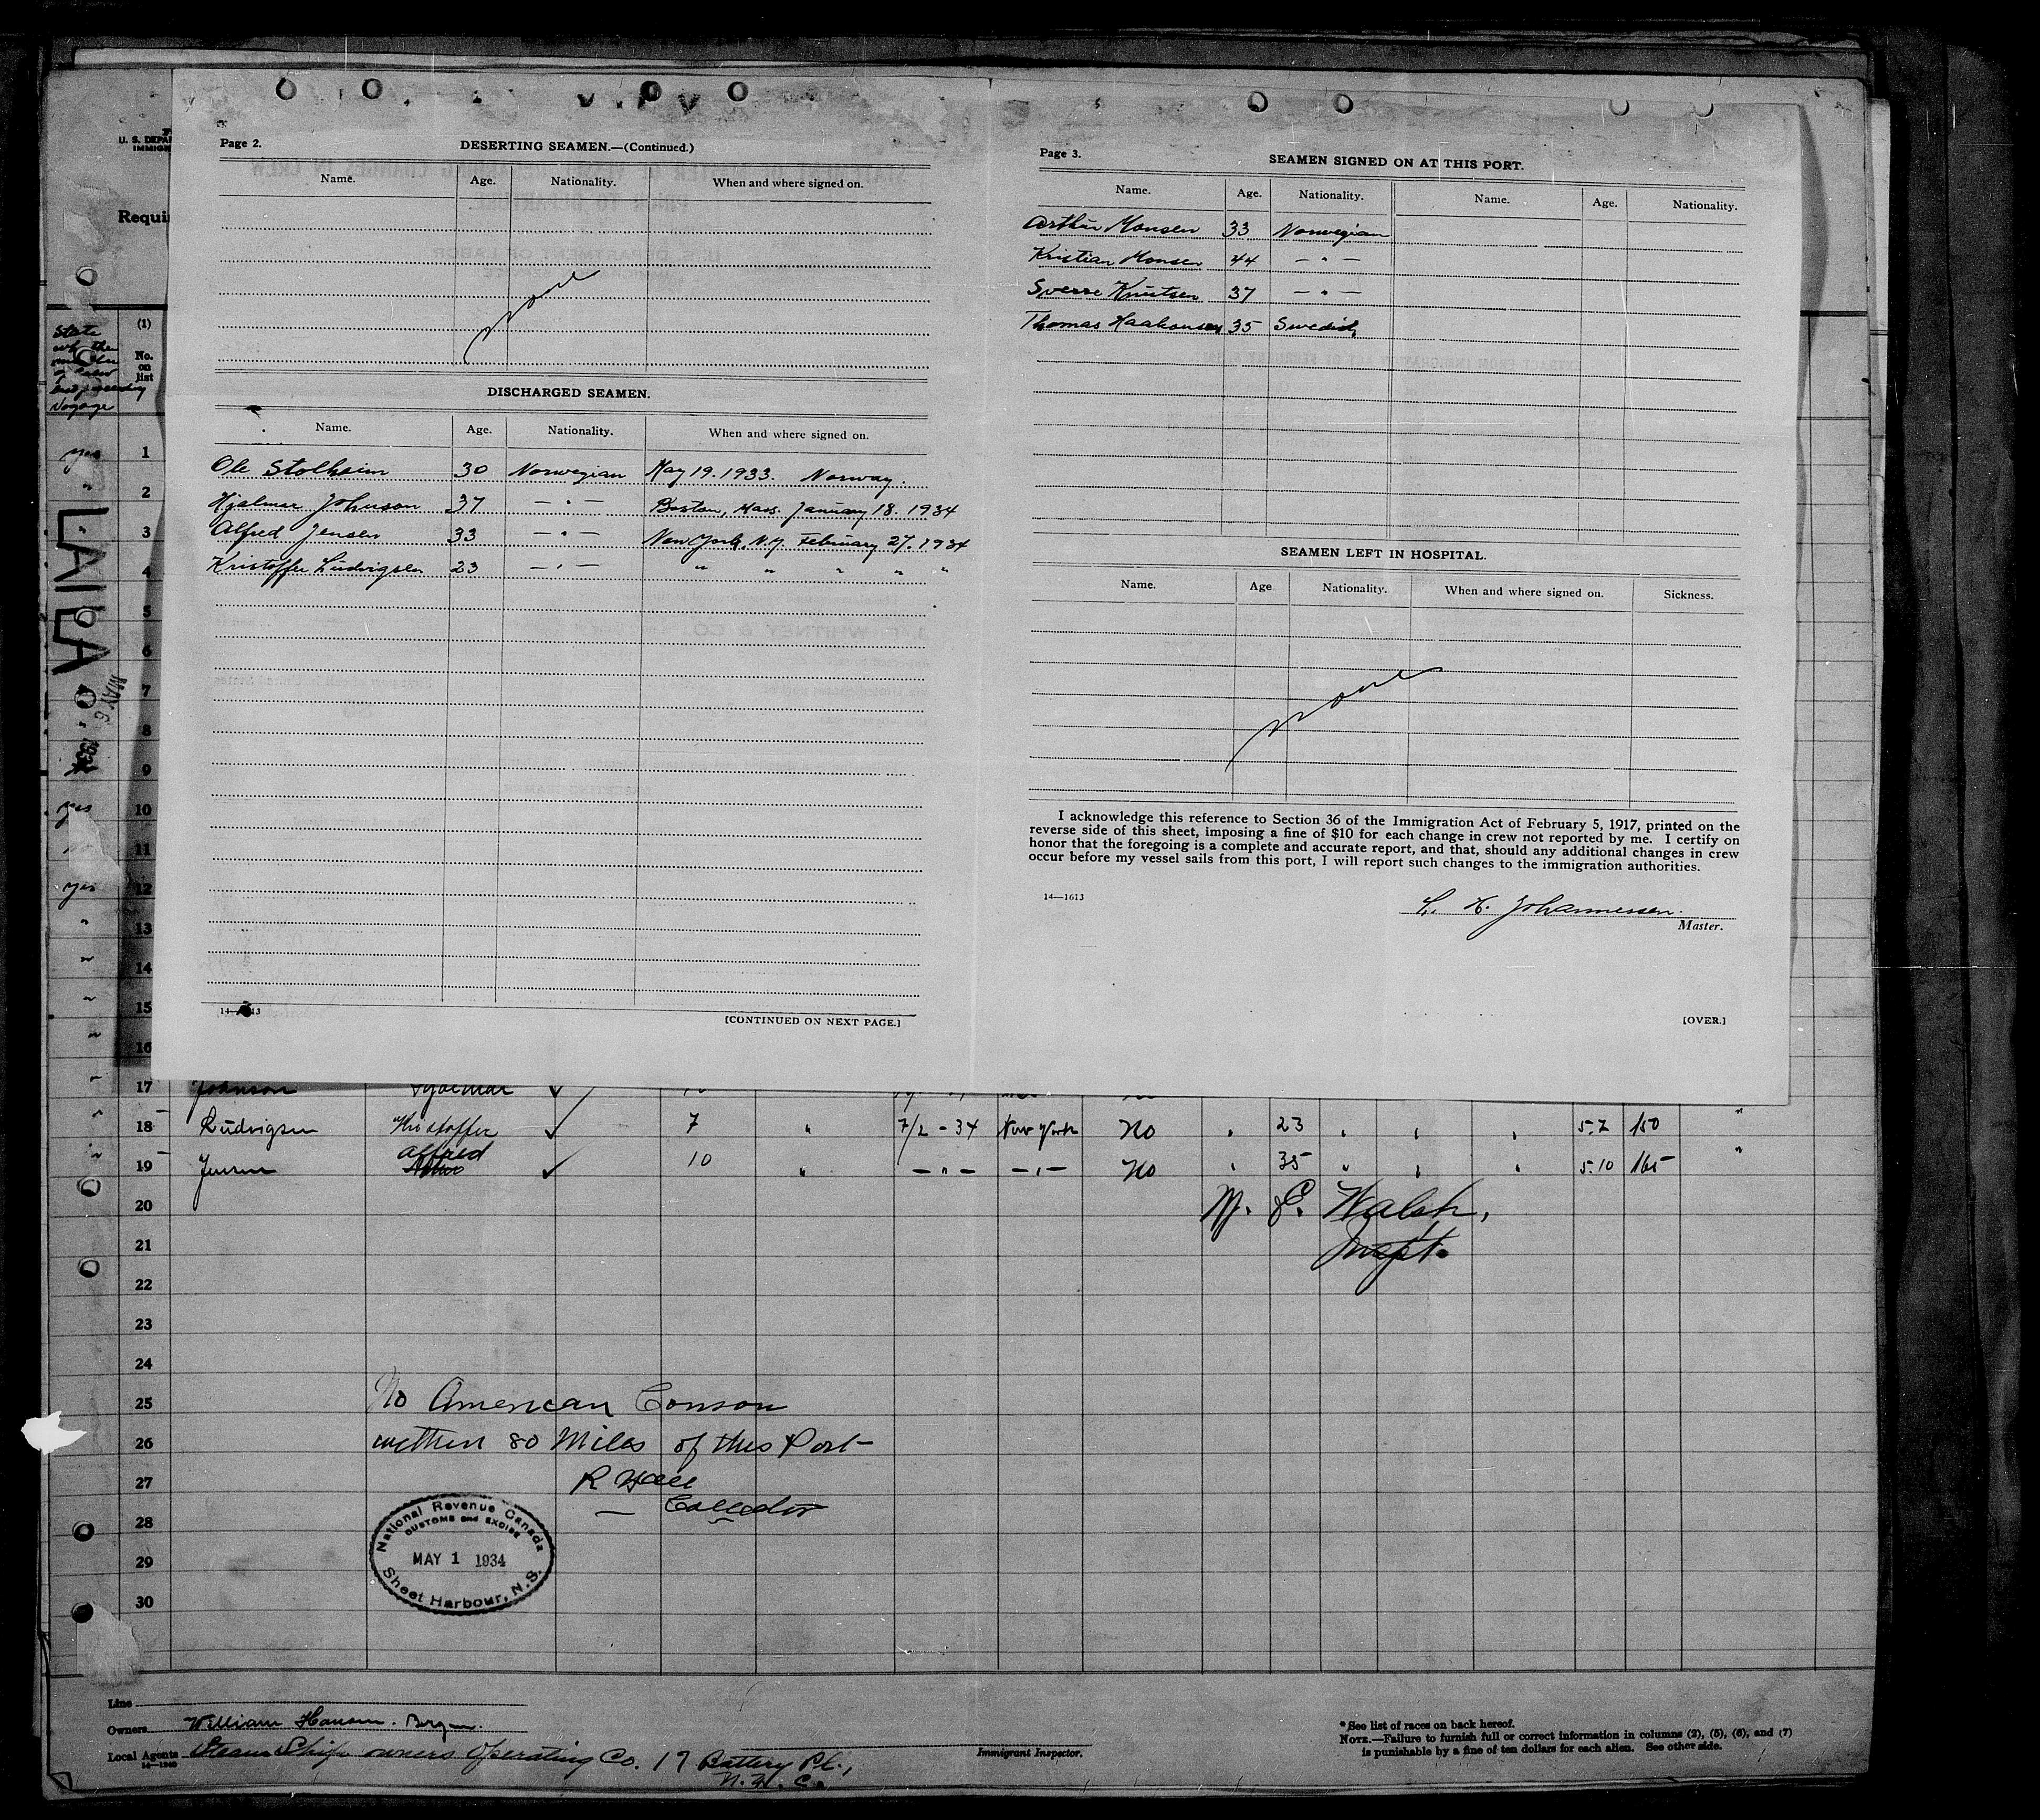 Page 2.
DESERTING SEAMEN.—(Continued.)
Name. Age. Nationality. When and where signed on.
None
DISCHARGED SEAMEN.
Name. Age. Nationality. When and where signed on.
Ole Stolheim 30 Norwegian May 19. 1933. Norway.
Hjalmar Johnson 37 — " — Boston, Mass. January 18. 1934
Alfred Jensen 33 — " — New York, N.Y. February 27. 1934
Kristoffer Ludvigsen 23 — " — " " " " "
14—1613
[CONTINUED ON NEXT PAGE.]
Page 3.
SEAMEN SIGNED ON AT THIS PORT.
Name. Age. Nationality. Name. Age. Nationality.
Arthur Monsen 33 Norwegian
Kristian Monsen 44 — " —
Sverre Knutsen 37 — " —
Thomas Haakonsen 35 Swedish
SEAMEN LEFT IN HOSPITAL.
Name. Age Nationality. When and where signed on. Sickness.
None
I acknowledge this reference to Section 36 of the Immigration Act of February 5, 1917, printed on the
reverse side of this sheet, imposing a fine of $10 for each change in crew not reported by me. I certify on
honor that the foregoing is a complete and accurate report, and that, should any additional changes in crew
occur before my vessel sails from this port, I will report such changes to the immigration authorities.
14—1613
L. H. Johannessen.
Master.
[OVER.]
U. S. DEPA
IMMIG
Requi
(1)
No.
on
list
State
why the
of crew
Voyage
LAILA
MAY 6 1934
yes 1
" 2
3
4
5
6
7
8
9
yes 10
11
yes 12
" 13
" 14
" 15
" 16
" 17 Johnson Hjalmar
" 18 Ludvigsen Kristoffer ✓ 7 " 7/2 - 34 New York No " 23 " " " 5.7 150 "
" 19 Jensen Alfred ✓ 10 " — " — — " — No " 35 " " " 5.10 165 "
20
21
22
23
24
25
26
27
28
29
30
M. E. Walsh,
Inspt.
No American Conson
within 80 Miles of this Port
R Hall
Collector
National Revenue Canada
CUSTOMS and EXCISE
MAY 1 1934
Sheet Harbour, N.S.
Line
Owners William Hansen. Bergen.
Local Agents Steam Ship owners Operating Co. 17 Battery Pl.,
N. Y. C.
Immigrant Inspector.
* See list of races on back hereof.
NOTE.—Failure to furnish full or correct information in columns (2), (5), (6), and (7)
is punishable by a fine of ten dollars for each alien. See other side.